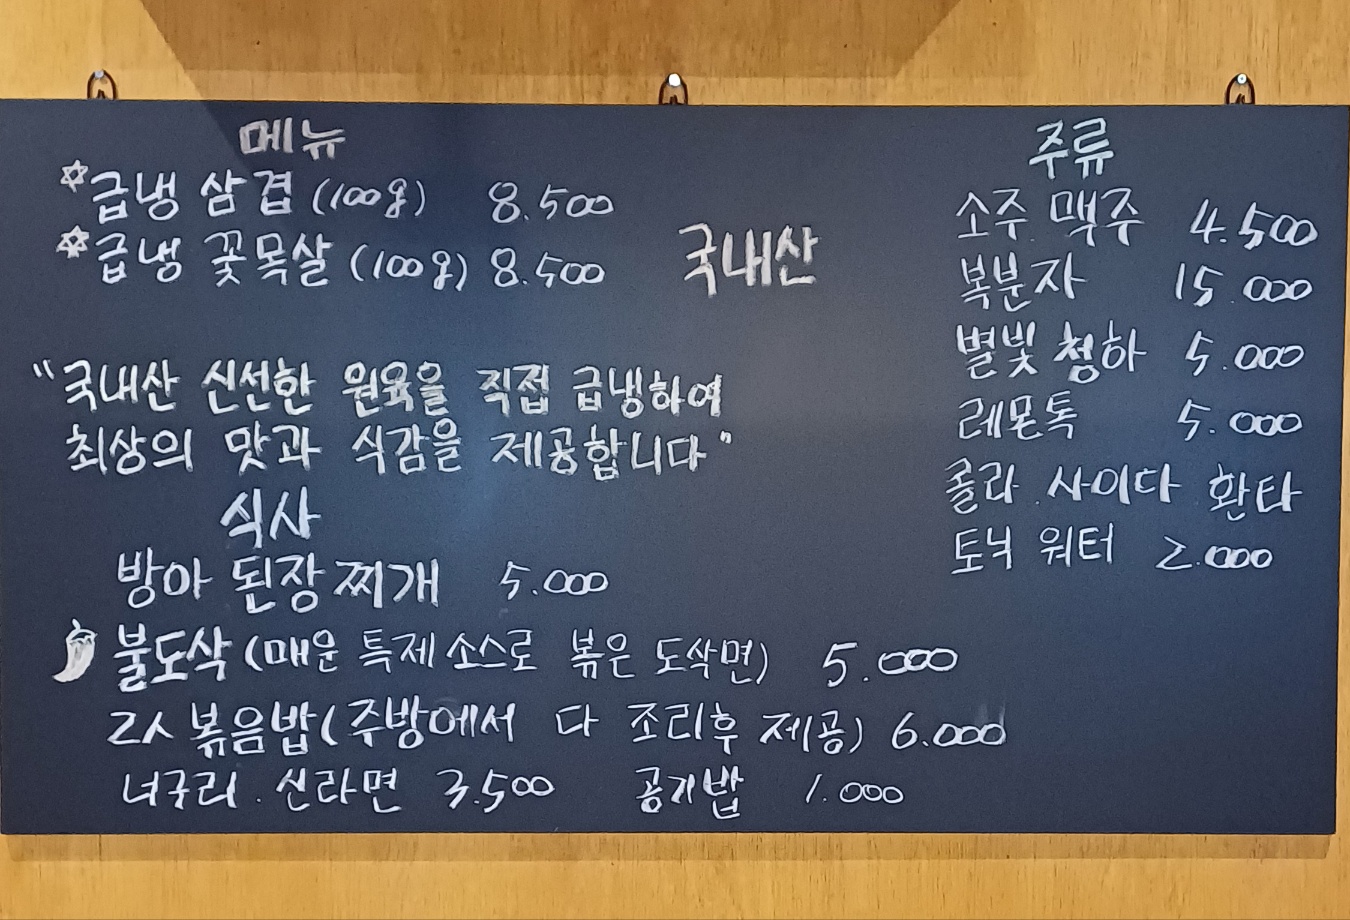 메뉴
☆급냉 삼겹 (100g) 8.500
☆급냉 꽃목살 (100g) 8.500
국내산
"국내산 신선한 원육을 직접 급냉하여
최상의 맛과 식감을 제공합니다"
식사
방아 된장찌개 5.000
불도삭 (매운 특제소스로 볶은 도삭면) 5.000
2人 볶음밥 (주방에서 다 조리후 제공) 6.000
너구리. 신라면 3.500 공기밥 1.000
주류
소주. 맥주 4.500
복분자 15.000
별빛 청하 5.000
레몬톡 5.000
콜라. 사이다 환타
토닉 워터 2.000